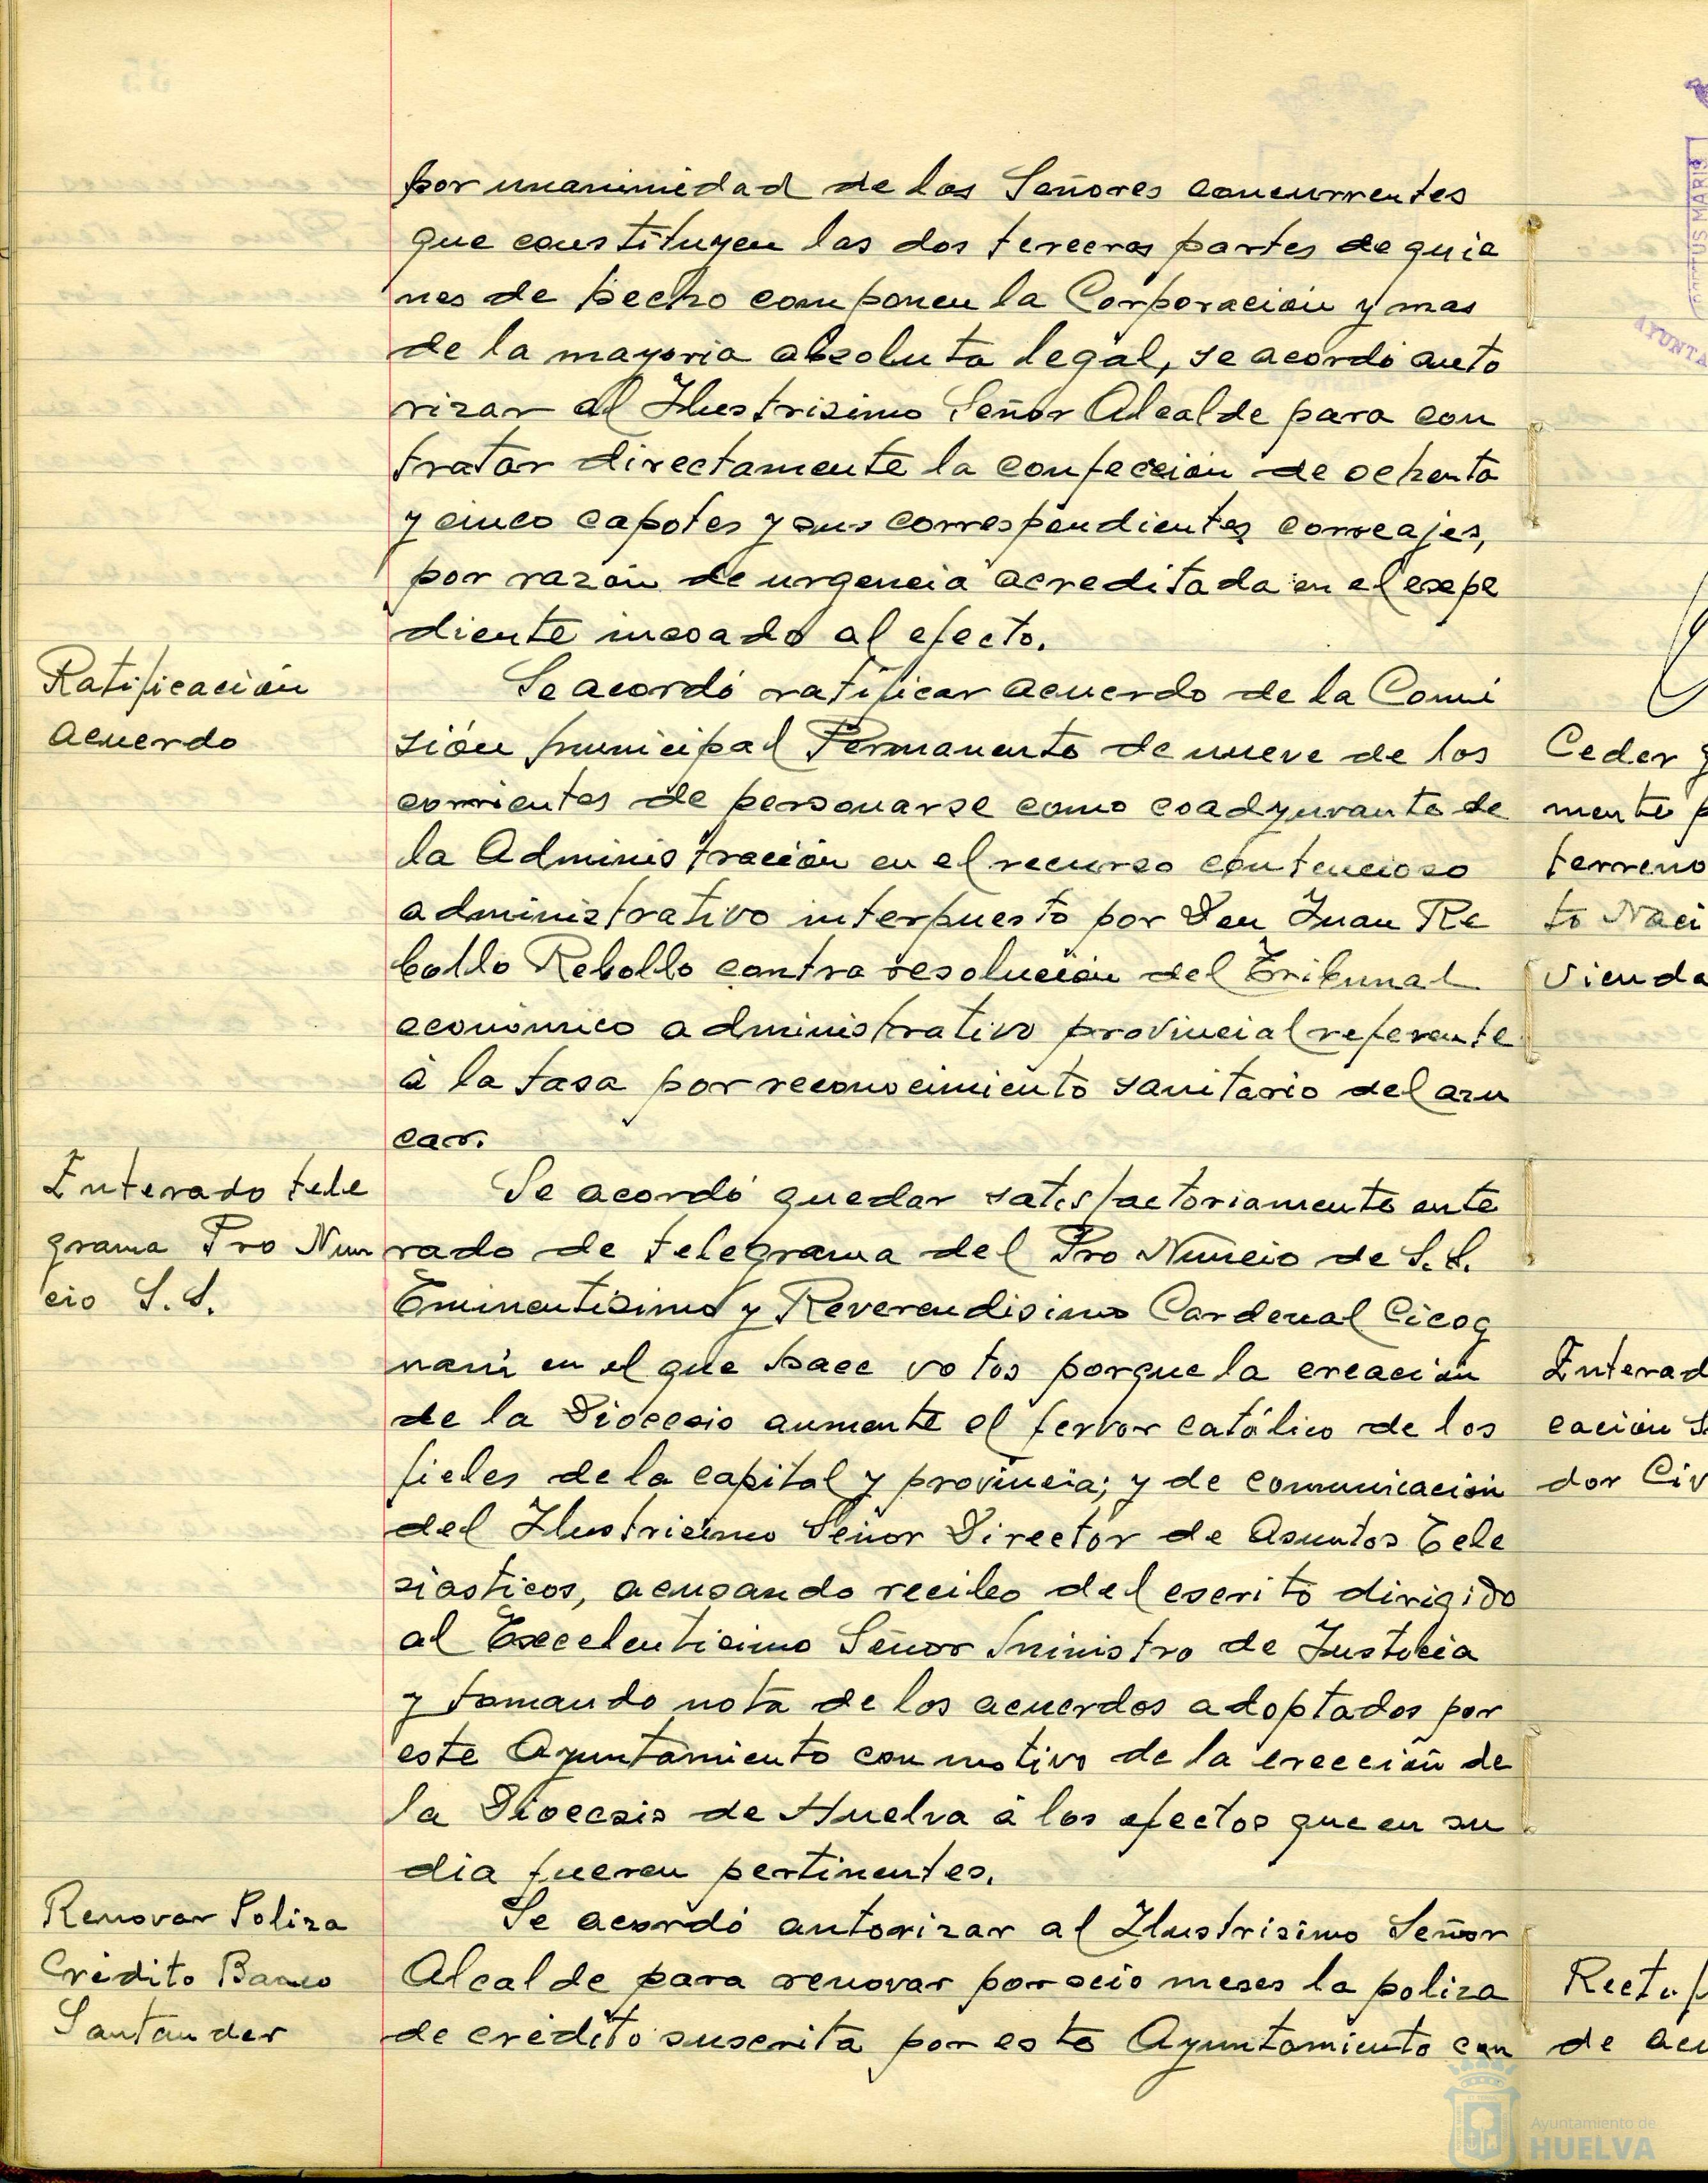 por unanimidad de los Señores concurrentes
que constituyen las dos terceras partes de quie
nes de hecho componen la Corporación y mas
de la mayoria absoluta legal, se acordó auto
rizar al Ilustrisimo Señor Alcalde para con
tratar directamente la confección de ochenta
y cinco capotes y sus correspondientes correajes,
por razón de urgencia acreditada en el expe
diente incoado al efecto.
Ratificación
acuerdo
Se acordó ratificar acuerdo de la Comi
sión municipal Permanente de nueve de los
corrientes de personarse como coadyuvante de
la Administración en el recurso contencioso
administrativo interpuesto por Don Juan Re
bollo Rebollo contra resolución del Tribunal
económico administrativo provincial referente
á la tasa por reconocimiento sanitario del azu
car.
Enterado tele
grama Pro Nun
cio S.S.
Se acordó quedar satisfactoriamente ente
rado de telegrama del Pro Nuncio de S.S.
Eminentisimo y Reverendisimo Cardenal Cicog
nani en el que hace votos porque la creación
de la Diocesis aumente el fervor católico de los
fieles de la capital y provincia; y de comunicación
del Ilustrisimo Señor Director de Asuntos Ecle
siasticos, acusando recibo del escrito dirigido
al Excelentisimo Señor Ministro de Justicia
y tomando nota de los acuerdos adoptados por
este Ayuntamiento con motivo de la erección de
la Diocesis de Huelva á los efectos que en su
dia fueren pertinentes.
Renovar Poliza
Crédito Banco
Santander
Se acordó autorizar al Ilustrisimo Señor
Alcalde para renovar por seis meses la poliza
de crédito suscrita por este Ayuntamiento con
Ceder
mente
terreno
to Naci
vienda
Enterad
cación
dor Civ
de acu
Ayuntamiento de
HUELVA